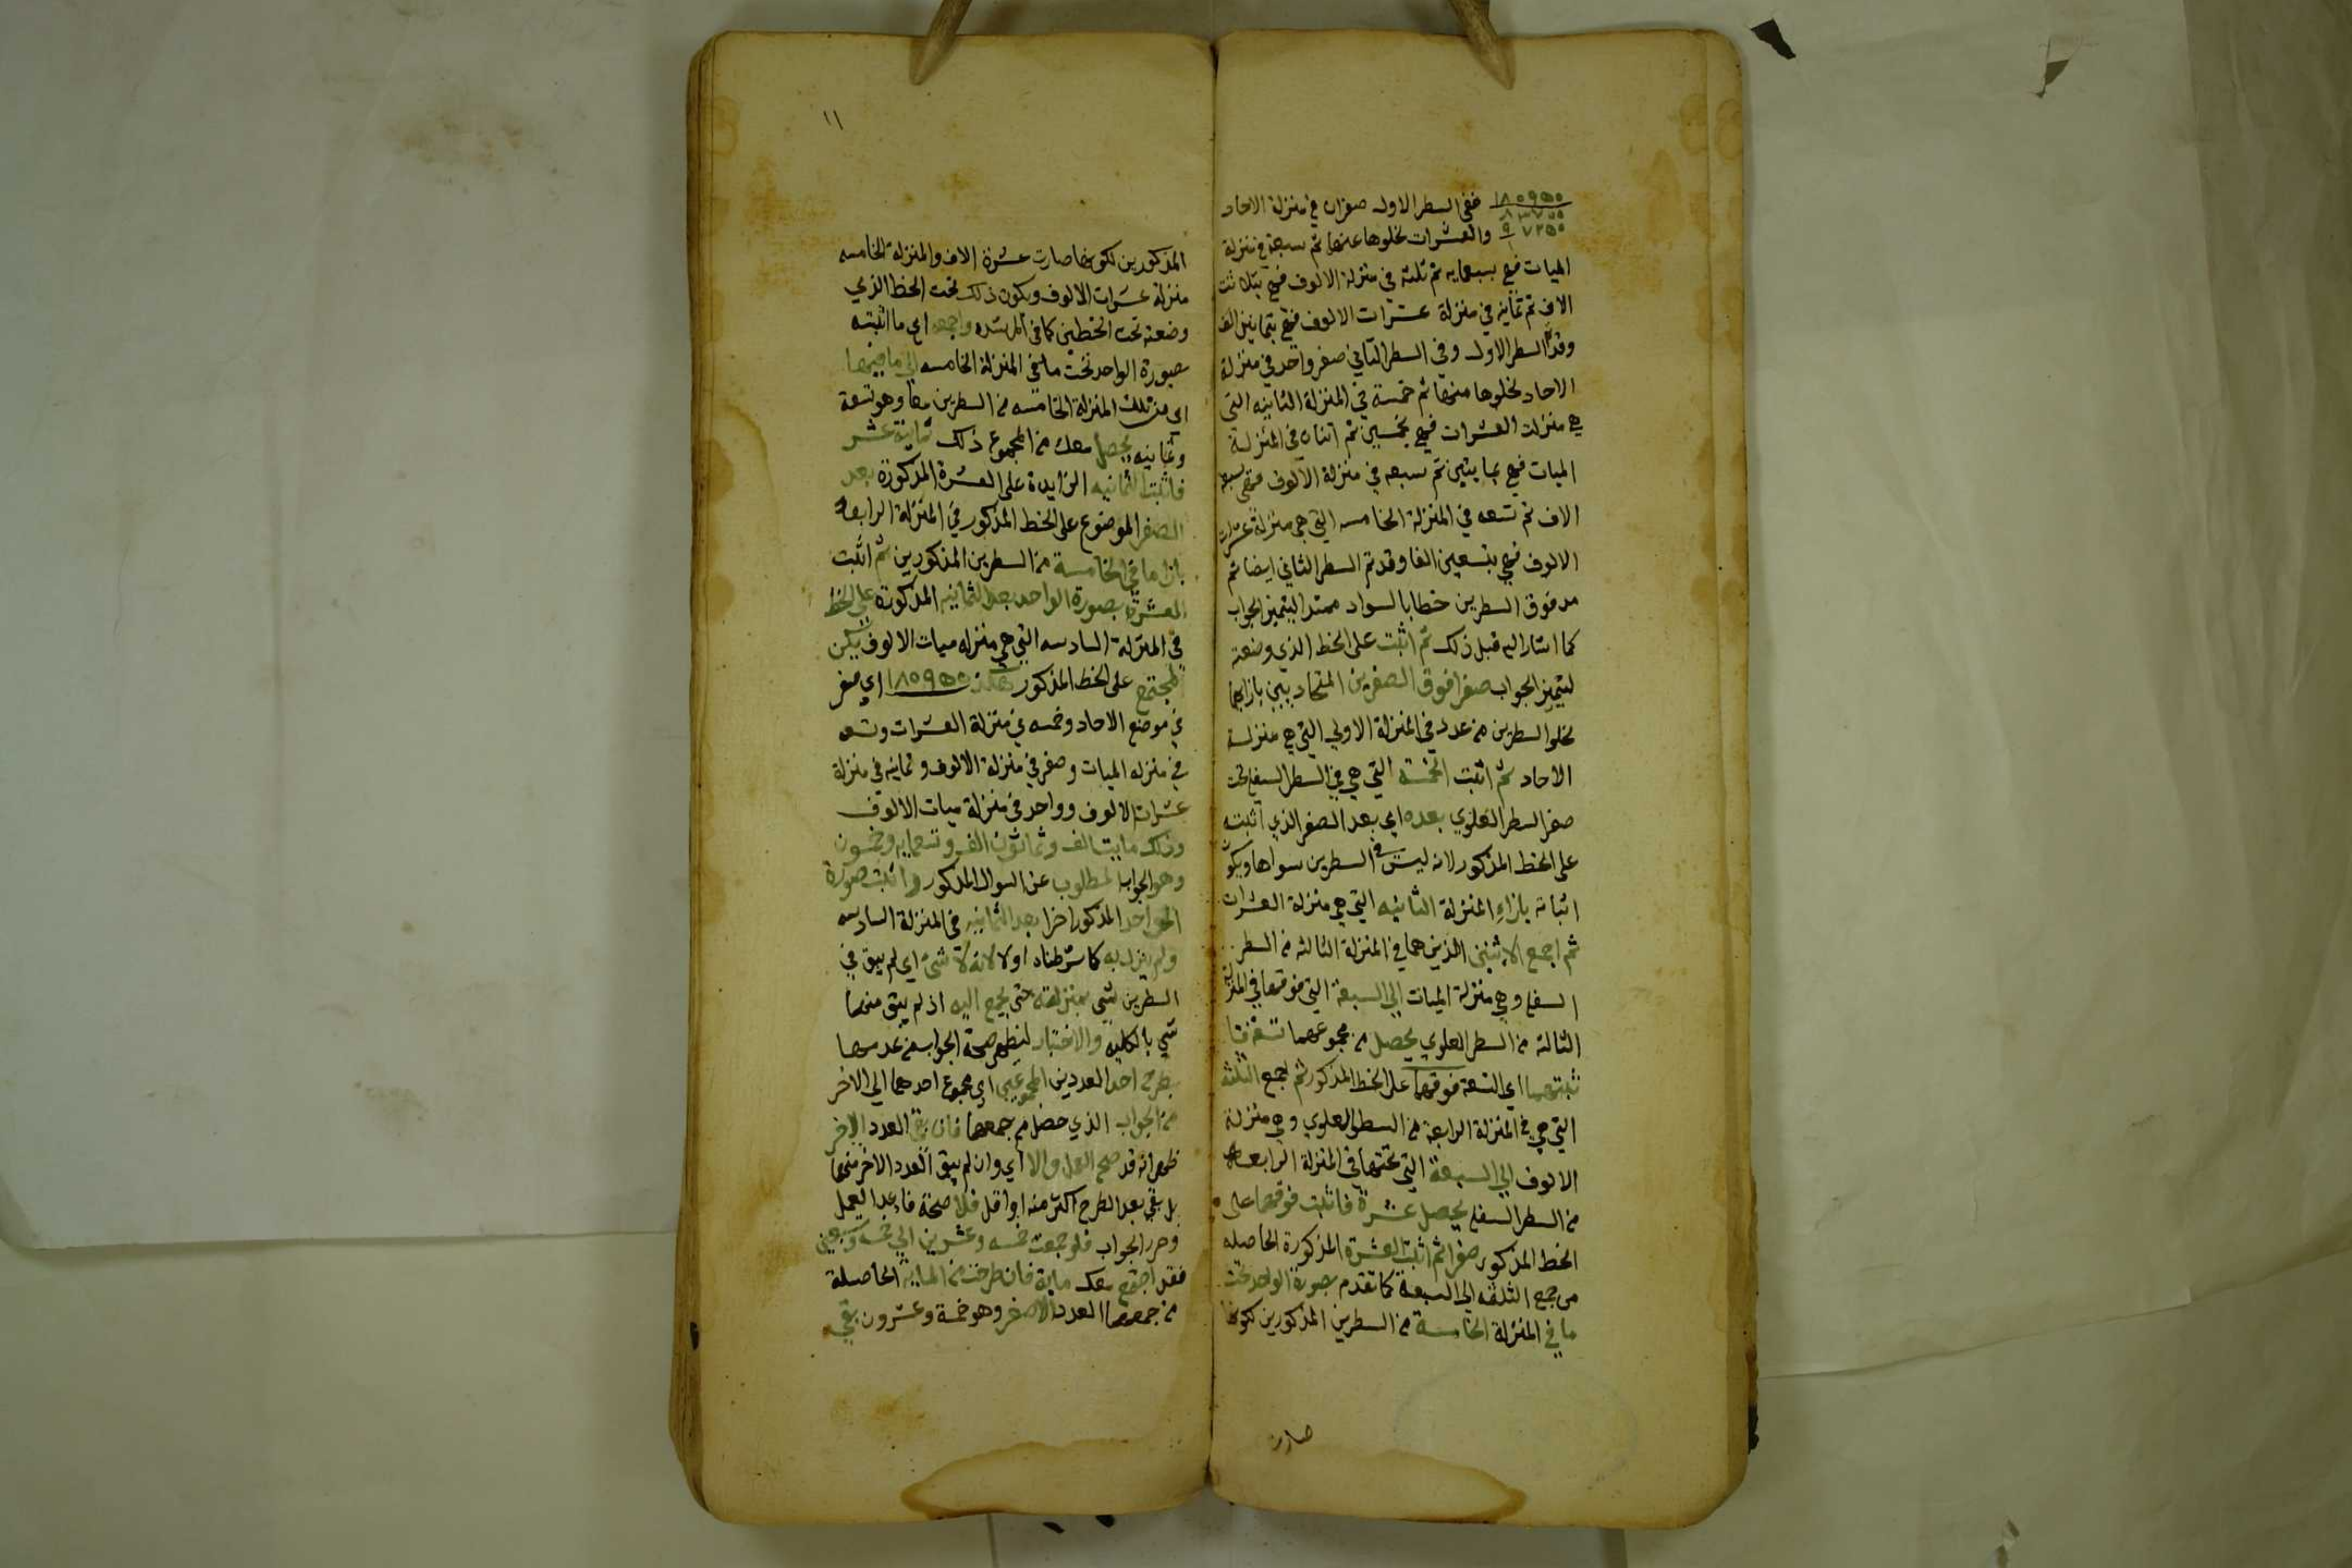 ١٨٠٩٥٠ ففي السطر الاول صفران في منزلة الاحاد
٨٣٧٠٠
٩٧٢٥٠ والعشرات لخلوها عنهما ثم سبعة في منزلة
الميات فهي بسبعمايه ثم ثلثه في منزلة الالوف فهي بثلاثة
الاف ثم ثمانيه في منزلة عشرات الالوف فهي بثمانين الف
وقد تم السطر الاول وفي السطر الثاني صفر واحد في منزلة
الاحاد لخلوها منها ثم خمسة في المنزلة الثانيه التي
هي منزلت العشرات فهي بخمسين ثم اثنان في المنزلة
الميات فهي بمايتين ثم سبعه في منزلة الالوف فهي بسبعة
الاف ثم تسعه في المنزلة الخامسه التي هي منزلة عشرات
الالوف فهي بتسعين الفا وقد تم السطر الثاني ايضا ثم
مد فوق السطرين خطا بالسواد ممتدا ليتميز الجواب
كما اشار اليه قبل ذلك ثم اثبت على الخط الذي وضعته
ليتميز الجواب صفرا فوق الصفرين المتحاديين بازايهما
لخلو السطرين من عدد في المنزلة الاولي التي هي منزلة
الاحاد ثم اثبت الخمسه التي هي في السطر السفلي تحت
صفر السطر العلوي بعده اي بعد الصفر الذي اثبته
على الخط المذكور لانه ليس في السطرين سواها ويكون
اثباته بازاء المنزلة الثانيه التي هي منزلة العشرات
ثم اجمع الاثنين الذين هما في المنزلة الثالثه من السطر
السفلي وهي منزلة الميات الي السبعة التي فوقها في المنزلة
الثالثه من السطر العلوي يحصل من مجموعهما تسعة
اي التسعة فوقهما على الخط المذكور ثم اجمع الثلثه
التي هي في المنزلة الرابعة من السطر العلوي وهي منزلة
الالوف الي السبعة التي تحتها في المنزلة الرابعه
من السطر السفلي يحصل عشرة فاثبت فوقهما على
الخط المذكور صفرا ثم اثبت العشرة المذكورة الحاصله
من جمع الثلثه الي السبعة كما تقدم بصورة الواحد تحت
ما في المنزلة الخامسة من السطرين المذكورين لكونها
صارت
١١
المذكورين لكونها صارت عشرة الاف والمنزلة الخامسه
منزلة عشرات الالوف ويكون ذلك تحت الخط الذي
وضعته تحت الخطين كما في واجمعه اي ما اثبته
بصورة الواحد تحت ما في المنزلة الخامسه الي ما فيهما
اي من تلك المنزلة الخامسه من السطرين معا وهو تسعة
وثمانيه يحصل معك من المجموع ذلك ثمانية عشر
فاثبت الثمانيه الزايدة على العشرة المذكورة بعد
الصفر الموضوع على الخط المذكور في المنزلة الرابعة
بازا ما في الخامسة من السطرين المذكورين ثم اثبت
العشرة بصورة الواحد بعد الثمانيه المذكورة على الخط
في المنزلة السادسه التي هي منزله ميات الالوف يكن
المجتمع على الخط المذكور هكذا ١٨٠٩٥٠ اي صفر
في موضع الاحاد وخمسه في منزلة العشرات وتسعه
في منزله الميات وصفر في منزلة الالوف وثمانيه في منزلة
عشرات الالوف وواحد في منزلة ميات الالوف
وذلك الف وثمانون الف وتسعمايه وخمسون
وهو الجواب المطلوب عن السوال المذكور واثبت صورة
الواحد المذكور اخرا بعد الثمانيه في المنزلة السادسه
ولم كما شرطناه اولا لانه لا شئ اي لم يبق في
السطرين شي بمنزلته حتى يجمع اليه اذ لم يبق منهما
شي بالكليه والاختبار ليظهر صحة الجواب من عدمها
بطرح احد العددين المجموعين اي مجموع احدهما الي الاخر
من الجواب الذي حصل من جمعهما فان بقي العدد الاخر
ظهر انه قد صح العمل والا اي وان لم يبق العدد الاخر منهما
بل بقي بعد الطرح اكثر منه او اقل فلا صحة فاعد العمل
وحرر الجواب فلو جمعت خمسه وعشرين الي خمسه وسبعين
فقد اجتمع معك ماية فان طرحت من الماية الحاصلة
من جمعهما العدد الاصغر وهو خمسة وعشرون بقي